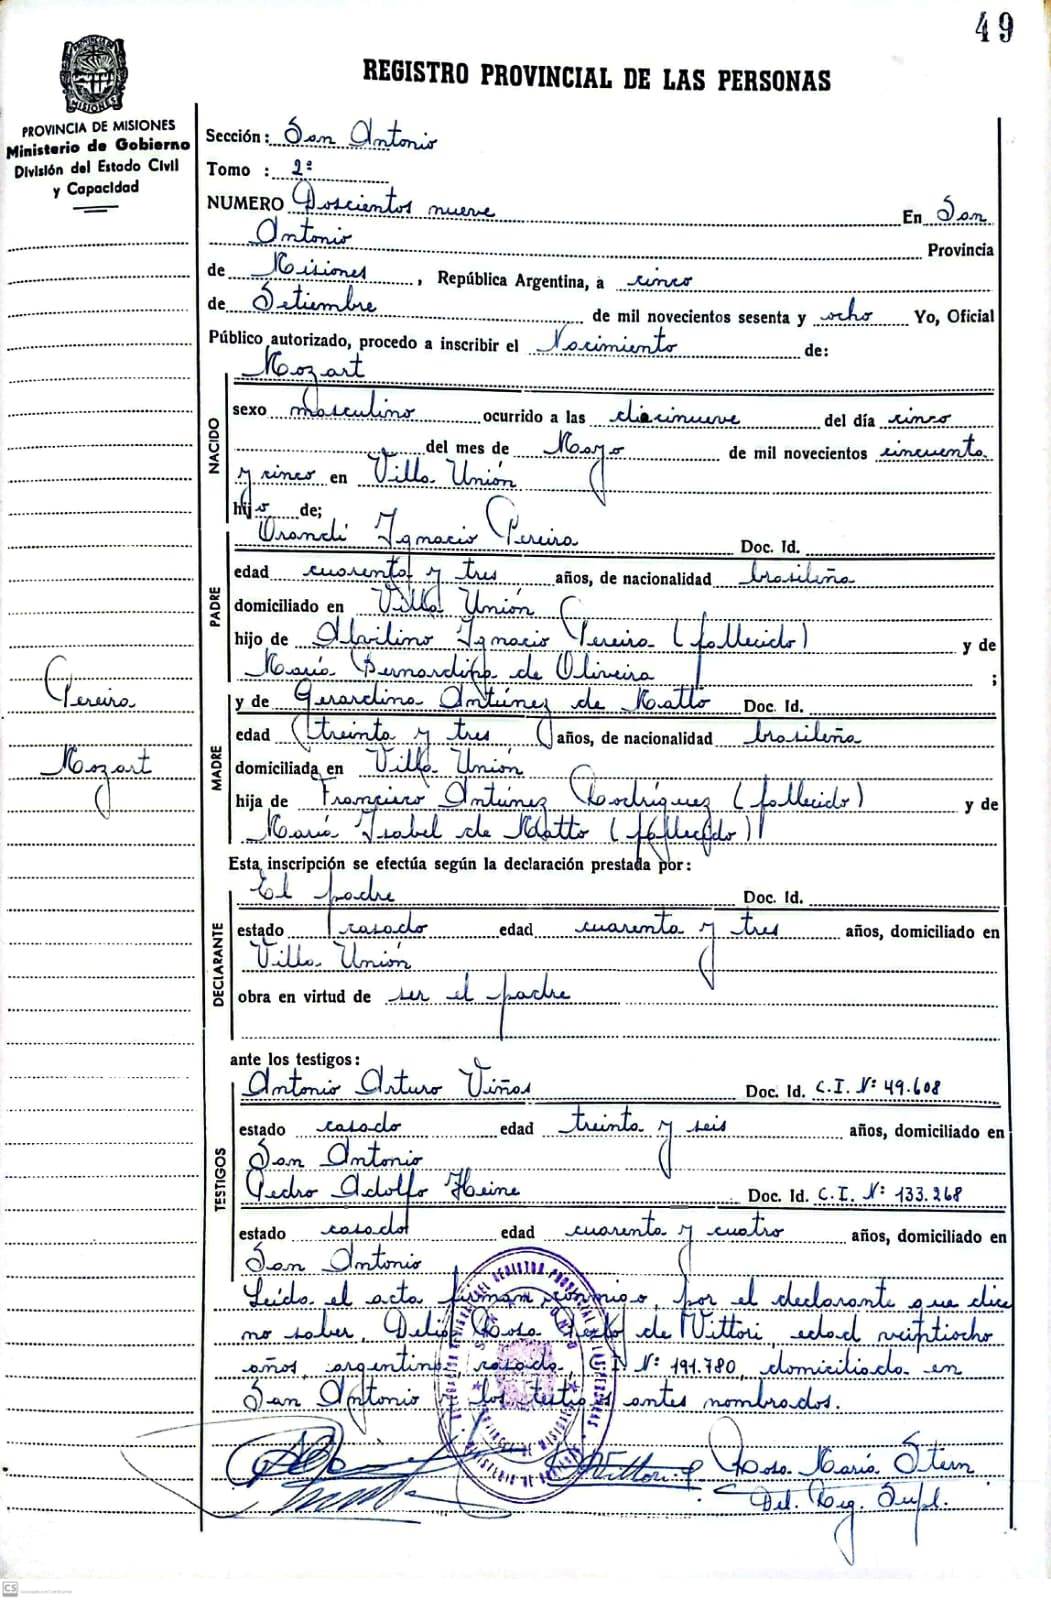 49
REGISTRO PROVINCIAL DE LAS PERSONAS
PROVINCIA DE MISIONES
Ministerio de Gobierno
División del Estado Civil
y Capacidad
Sección: San Antonio
Tomo : 2º
NUMERO Doscientos nueve En San
Antonio Provincia
de Misiones, República Argentina, a cinco
de Setiembre de mil novecientos sesenta y ocho Yo, Oficial
Público autorizado, procedo a inscribir el Nacimiento de:
Mozart
NACIDO
sexo masculino ocurrido a las diecinueve del día cinco
del mes de Mayo de mil novecientos cincuenta
y cinco en Villa Unión
hijo de;
PADRE
Orandi Ignacio Pereira Doc. Id.
edad cuarenta y tres años, de nacionalidad brasileña
domiciliado en Villa Unión
hijo de Alvilino Ignacio Pereira (fallecido) y de
María Bernardina de Oliveira ;
Pereira
Mozart
MADRE
y de Gerardina Antúnez de Matto Doc. Id.
edad treinta y tres años, de nacionalidad brasileña
domiciliada en Villa Unión
hija de Francisco Antúnez Rodríguez (fallecido) y de
María Isabel de Matto (fallecido)
Esta inscripción se efectúa según la declaración prestada por:
DECLARANTE
El padre Doc. Id.
estado casado edad cuarenta y tres años, domiciliado en
Villa Unión
obra en virtud de ser el padre
ante los testigos:
TESTIGOS
Antonio Arturo Viñas Doc. Id. C.I. Nº 49.608
estado casado edad treinta y seis años, domiciliado en
San Antonio
Pedro Adolfo Heine Doc. Id. C.I. Nº 133.268
estado casado edad cuarenta y cuatro años, domiciliado en
San Antonio
Leída el acta firman conmigo, por el declarante que dice
no saber, Delia Rosa de Vittori, edad veintiocho
años, argentina, casada, C.I. Nº 191.780, domiciliada en
San Antonio y los testigos antes nombrados.
Vittori
Rosa María Stern
Del. Reg. Supl.
CS